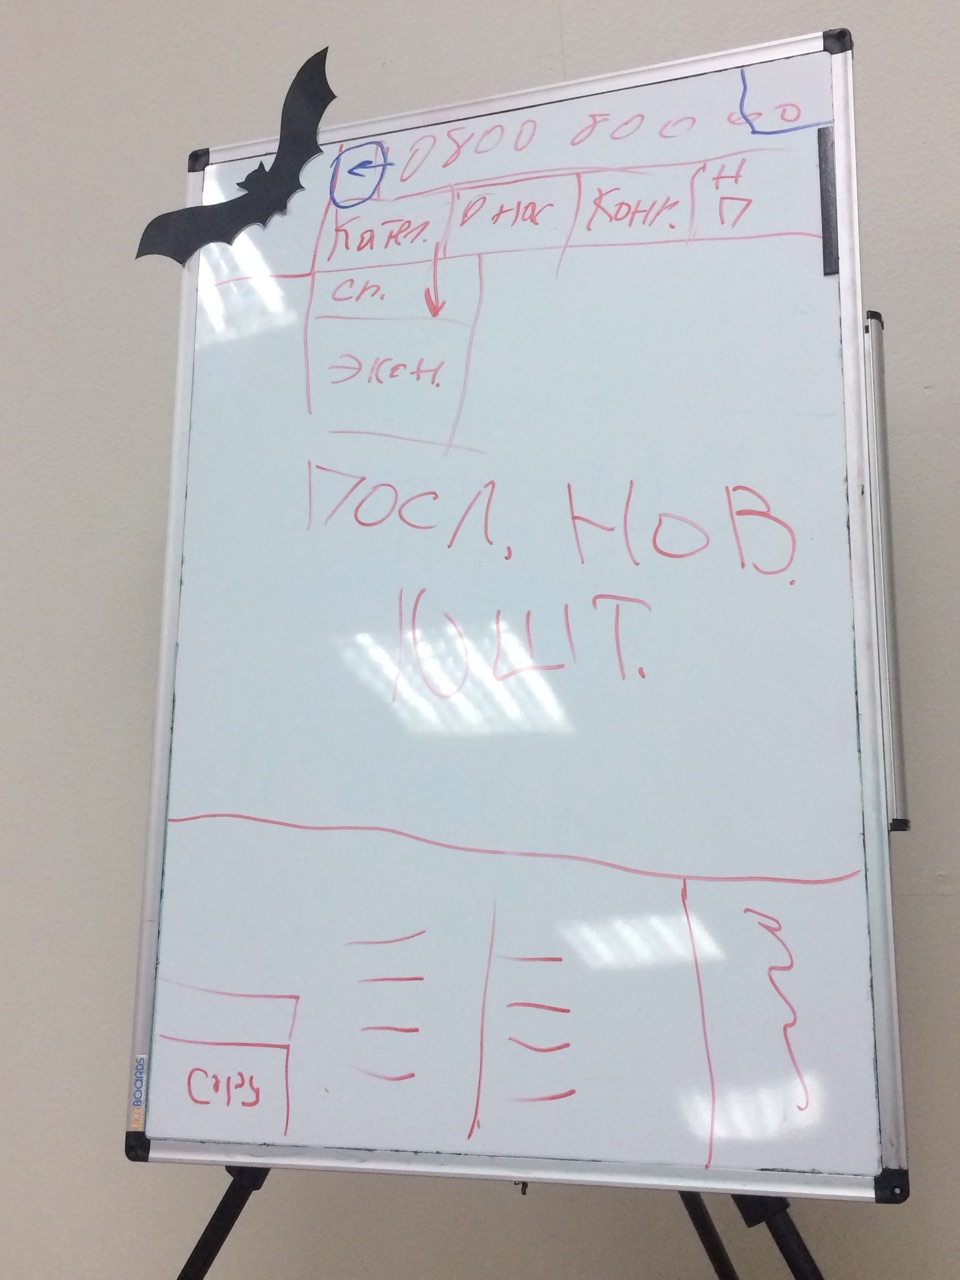 ← 0800 800
Катег. О нас Конт. Н
П
сп.
Экон.
посл. нов.
10 шт.
Copy
BOARDS